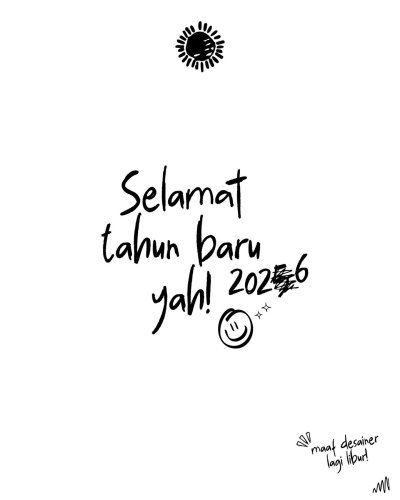 Selamat
tahun baru
yah! 2026
maaf desainer
lagi libur!